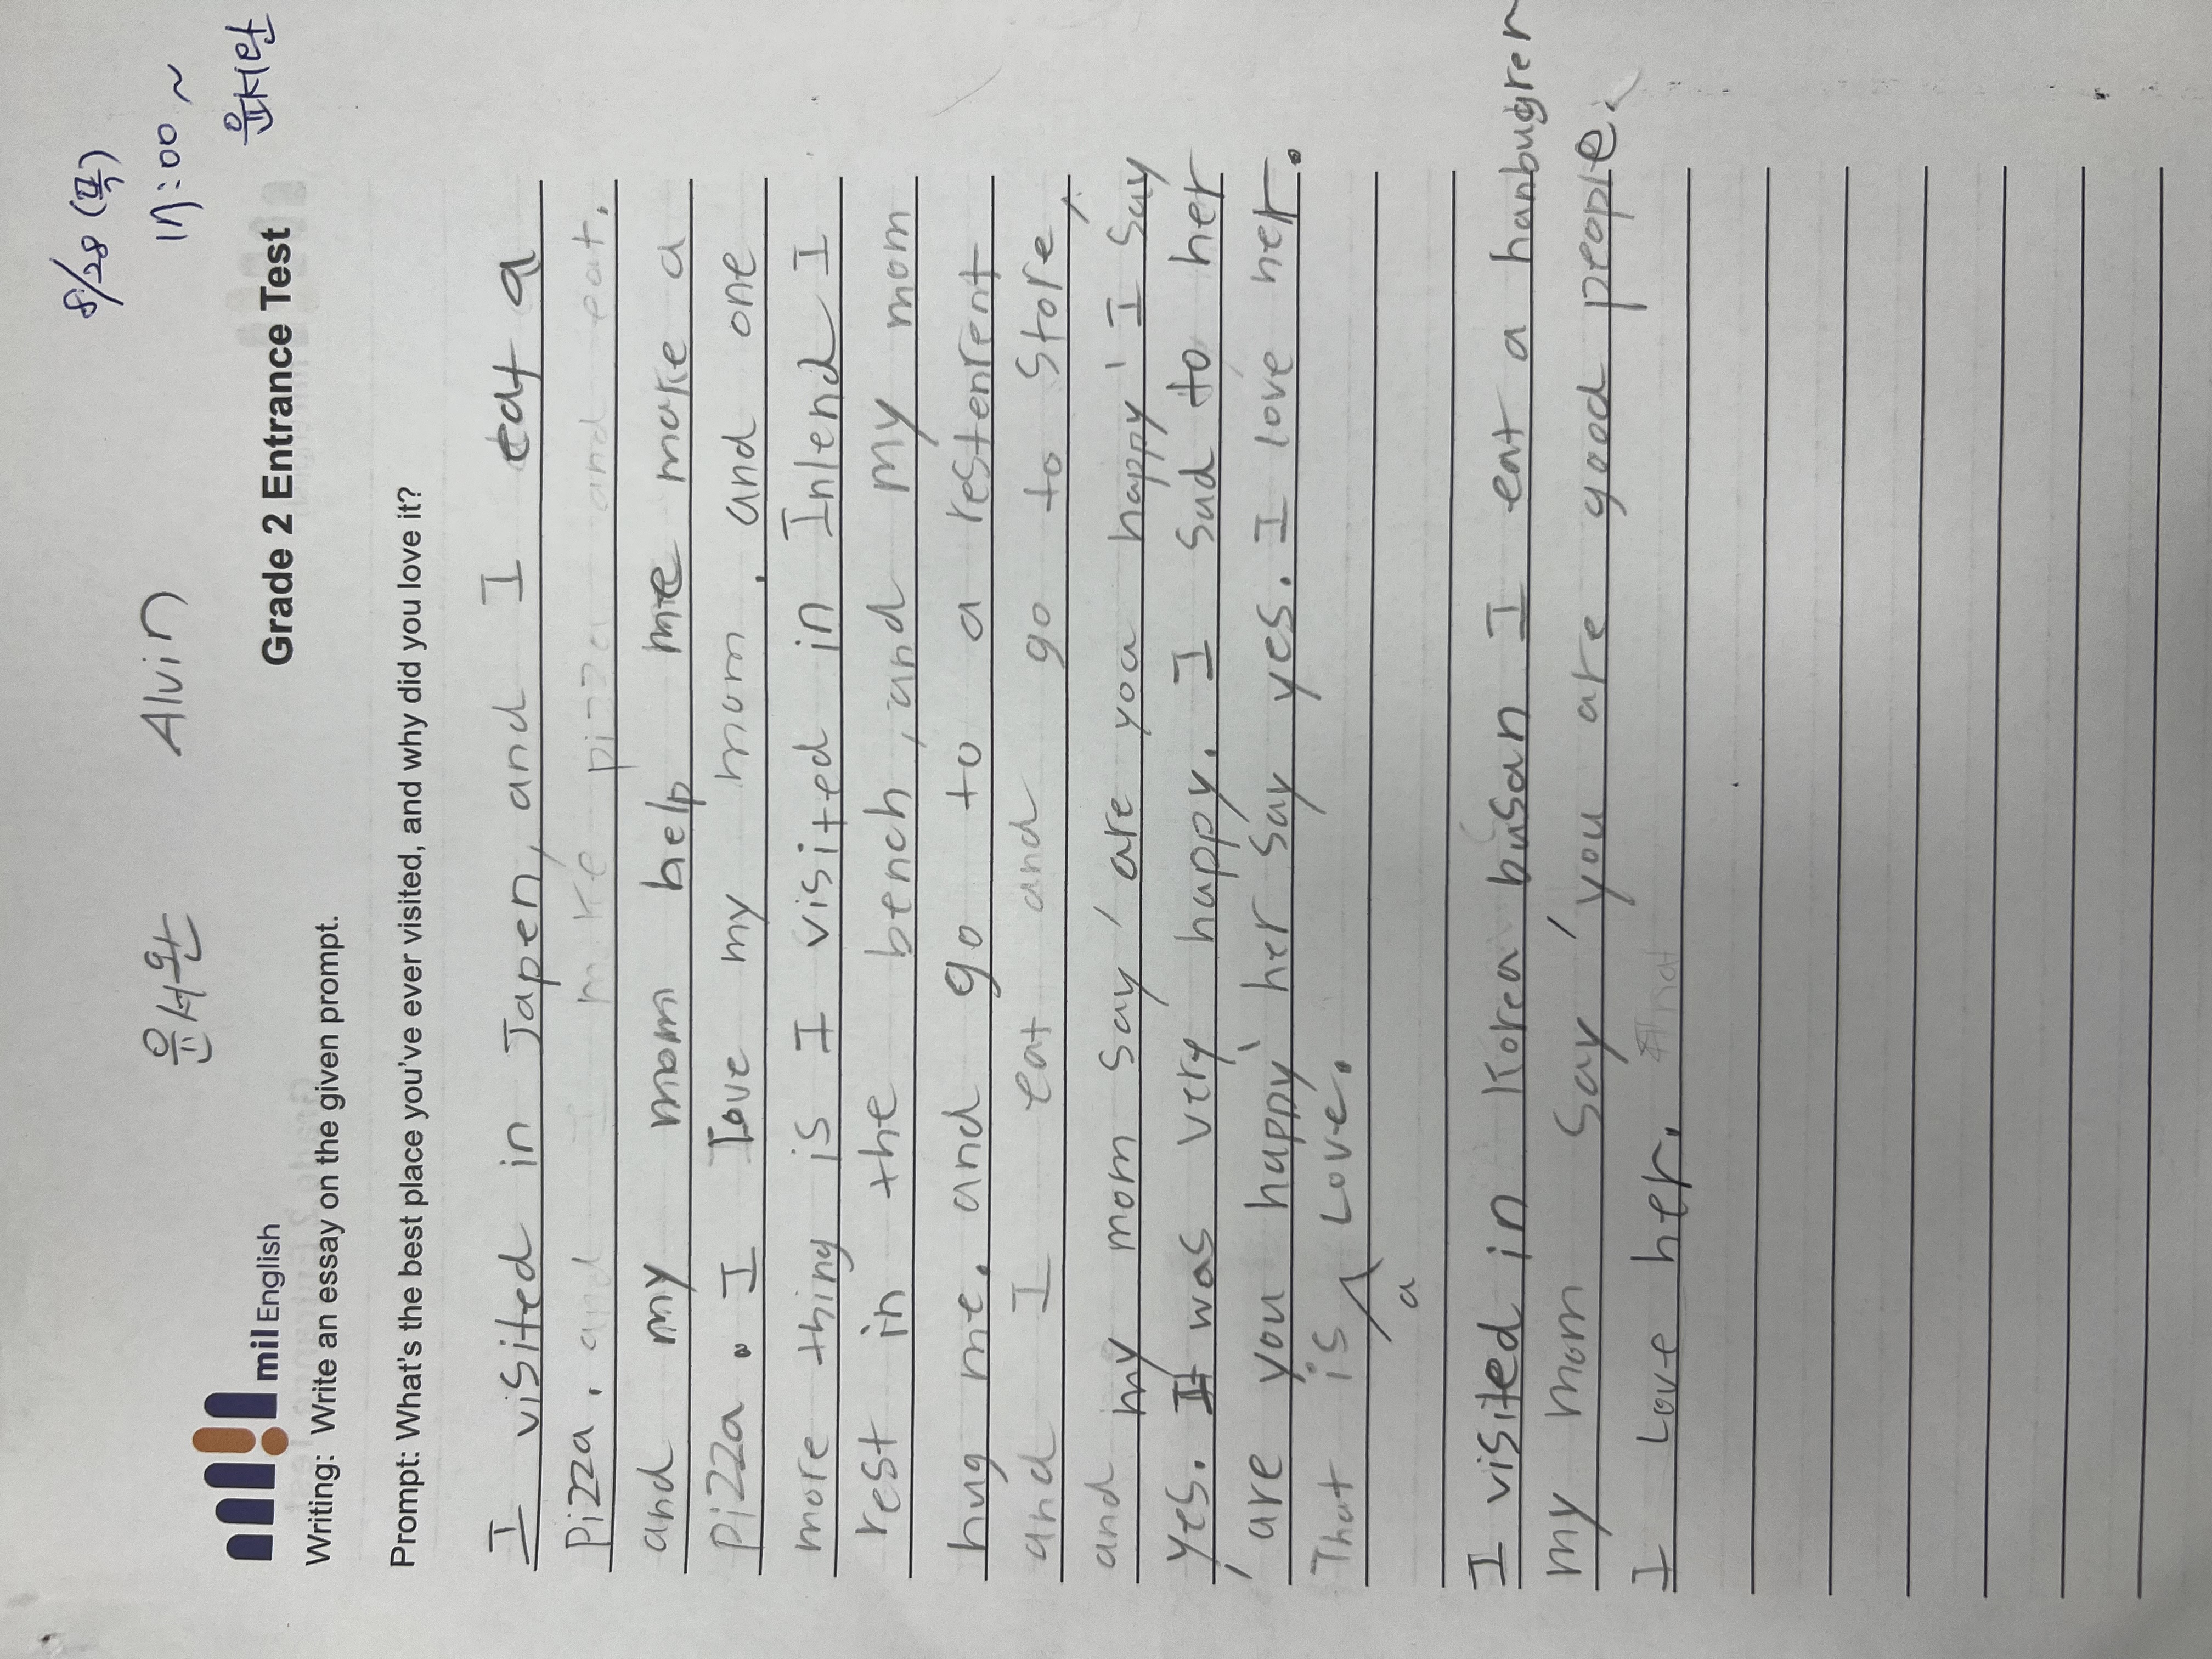 8/28 (목)
윤서완 Alvin
17:00 ~
mil English
Grade 2 Entrance Test
윤서완
Writing: Write an essay on the given prompt.
Prompt: What's the best place you've ever visited, and why did you love it?
I visited in Japen, and I eat a
pizza. and I make pizza and eat.
and my mom help me make a
pizza. I love my mom. and one
more thing is I visited in Inlend I
rest in the bench, and my mom
hug me. and go to a restenrent
and I eat and go to Store,
and my mom say 'are you happy' I say
yes. It was very happy. I sad to her
'are you happy' her say yes. I love her.
That is Love.
a
I visited in Korea busan I eat a hanbugrer
my mom say 'you are good people.
I Love her. That